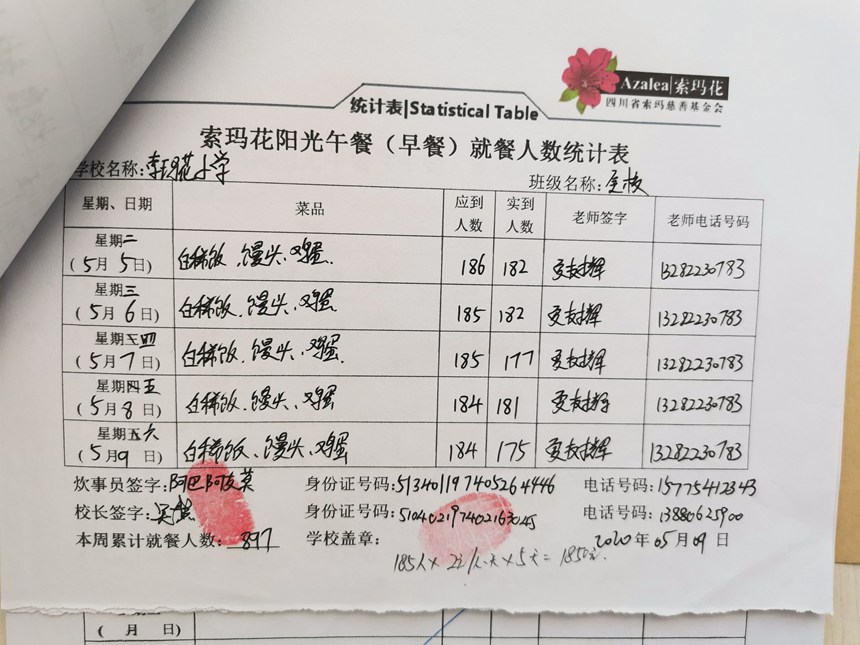 Azalea|索玛花
四川省索玛慈善基金会
统计表|Statistical Table
索玛花阳光午餐（早餐）就餐人数统计表
学校名称: 小学 班级名称: 全校
星期、日期 菜品 应到人数 实到人数 老师签字 老师电话号码
星期二 (5月5日) 白稀饭、馒头、鸡蛋. 186 182 13282230783
星期三 (5月6日) 白稀饭、馒头、鸡蛋. 185 182 13282230783
星期三四 (5月7日) 白稀饭、馒头、鸡蛋. 185 177 13282230783
星期四五 (5月8日) 白稀饭、馒头、鸡蛋 184 181 13282230783
星期五六 (5月9日) 白稀饭、馒头、鸡蛋 184 175 13282230783
炊事员签字: 身份证号码:513401197405264446 电话号码:15775412343
校长签字: 身份证号码:510402197402163045 电话号码:13880625900
本周累计就餐人数: 897 学校盖章： 2020年05月09日
185人×2元/人.天×5天=1850元.
( 月 日)